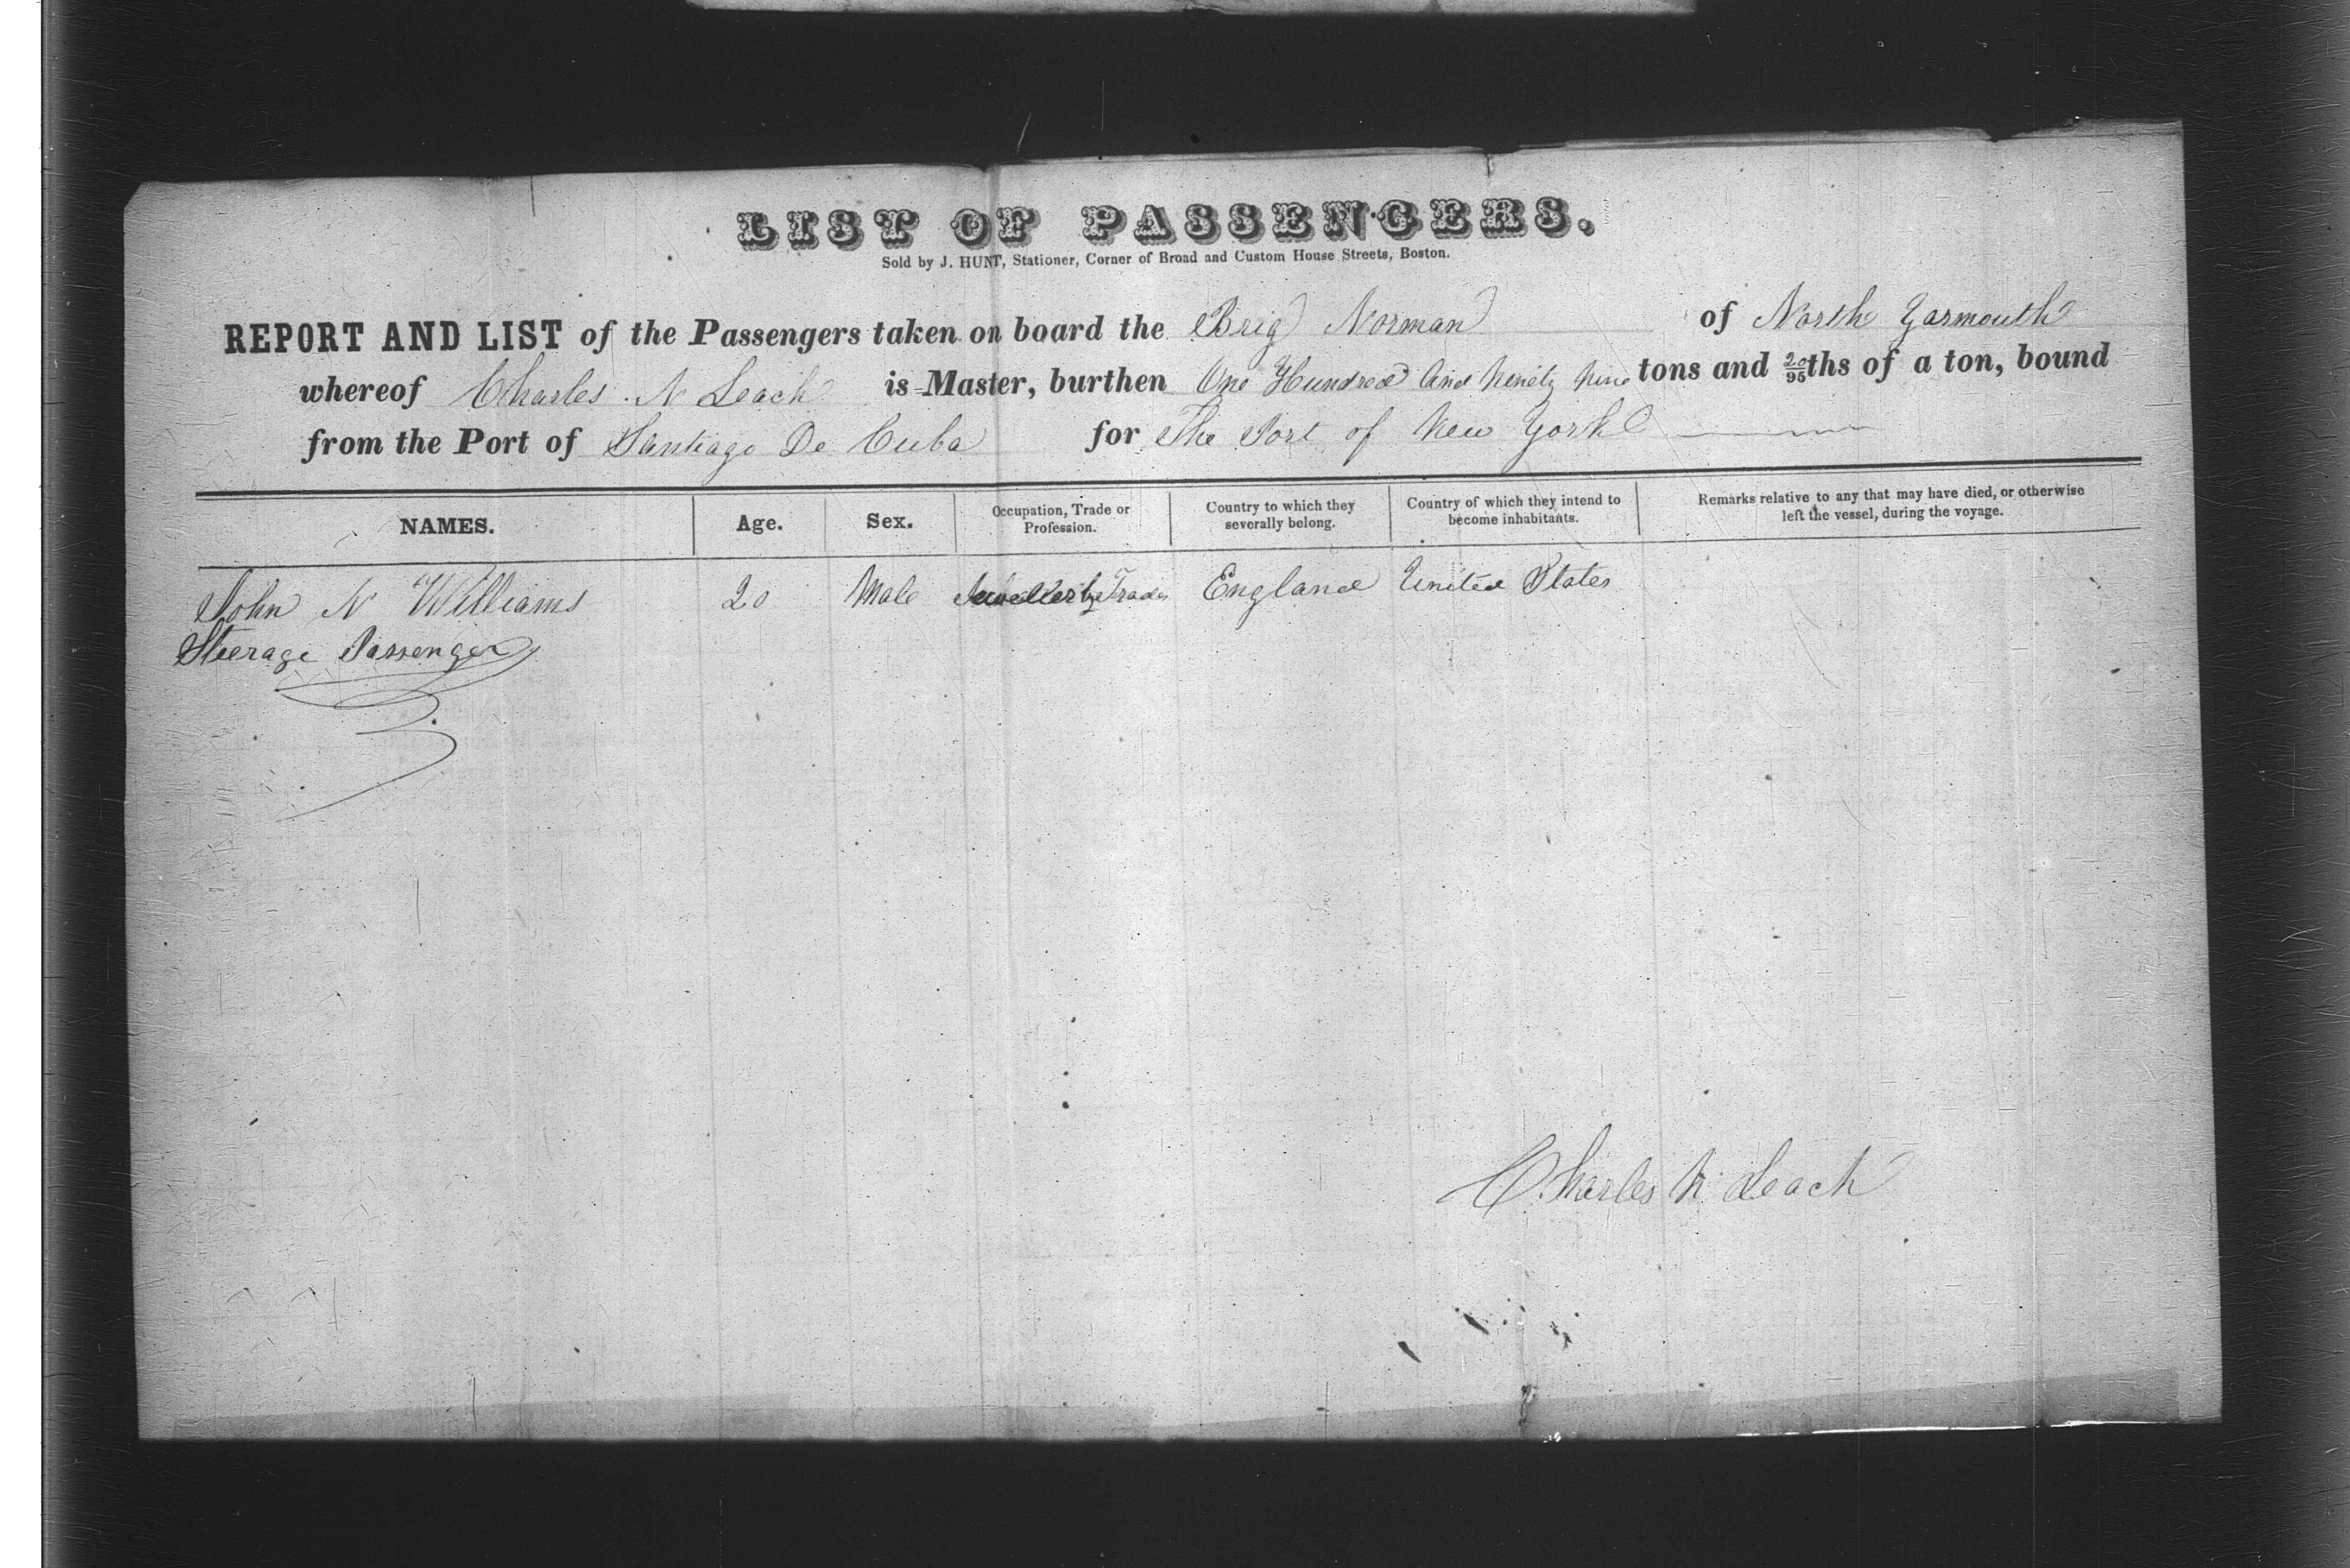 LIST OF PASSENGERS.
Sold by J. HUNT, Stationer, Corner of Broad and Custom House Streets, Boston.
REPORT AND LIST of the Passengers taken on board the Brig Norman of North Yarmouth
whereof Charles N Leach is Master, burthen One Hundred and Ninety Nine tons and 20/95ths of a ton, bound
from the Port of Santiago De Cuba for The Port of New York
NAMES. Age. Sex. Occupation, Trade or Profession. Country to which they severally belong. Country of which they intend to become inhabitants. Remarks relative to any that may have died, or otherwise left the vessel, during the voyage.
John N Williams 20 Male Jeweller by Trade England United States
Steerage Passenger
Charles N Leach